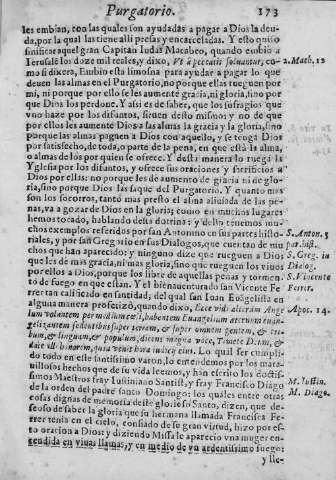 Purgatorio. 173
les embian, con las quales son ayudadas a pagar a Dios la deu-
da, por la qual las tiene alli presas y encarceladas. Y esto quiso
significar aquel gran Capitan Iudas Macabeo, quando embio a
Ierusalẽ los doze mil reales, y dixo, Vt à peccatis soluantur, co-
mo si dixera, Embio esta limosna para ayudar a pagar lo que
deuen las almas en el Purgatorio, no porque ellas rueguen por
mi, ni porque por ello se les aumente gracia, ni gloria, sino por
que Dios los perdone. Y assi es de saber, que los sufragios que
vno haze por los difuntos, siruen desto mismo: y no de que
por ellos les aumente Dios a las almas la gracia y la gloria, sino
porque las almas paguen a Dios con aquello, y se tenga Dios
por satisfecho, de toda, o parte de la pena, en que està la alma,
o almas de los por quien se ofrece. Y desta manera lo ruega la
Yglesia por los difuntos, y ofrece sus oraciones y sacrificios a
Dios por ellas: no porque les de aumento de gracia ni de glo-
ria, sino porque Dios las saque del Purgatorio. Y quanto mas
son los socorros, tanto mas presto el alma aliuiada de las pe-
nas, va a gozar de Dios en la gloria; como en muchos lugares
hemos tocado, hablando desta dotrina: y desto tenemos mu-
chos exemplos referidos por san Antonino en sus partes histo-
riales, y por san Gregorio en sus Dialogos, que cuentan de mu
chos que han aparecido; y ninguno dize que rueguen a Dios
que les de mas gracia, ni mas gloria, sino que rueguen los viuos
por ellos a Dios, porque los libre de aquellas penas y tormen-
to de fuego en que estan. Y el bienauenturado san Vicente Fe
rrer tan calificado en santidad, del qual san Iuan Euãgelista en
alguna manera profetizò, quando dixo, Ecce vidi alterum Ange
lum volantem per medium cœli, habentem Euangelium æternum euan-
gelizantem sedentibus super terram, & super omnem gentem, & tri-
bum, & linguam, & populum, dicens magna voce, Timete Dñm, &
date illi honorem, quia venit hora iudicij eius. Lo qual ser cumpli-
do todo en este santissimo varon, lo entendemos por los mara-
uillosos hechos que de su vida leemos, y han escrito los doctis-
simos Maestros fray Iustiniano Santist. y fray Francisco Diago
de la orden del padre santo Domingo: los quales entre otras
cosas dignas de memoria deste glorioso Santo, dizen, que de-
seoso de saber la gloria que su hermana llamada Francisca Fe-
rrer tenia en el cielo, confiado de su gran virtud, hizo por es-
to oracion a Dios: y diziendo Missa le aparecio vna muger en-
cendida en viuas llamas, y en medio de vn ardentissimo fuego:
y lle-
2. Mach. 12
S. Anton. 3
par. hist.
S. Greg. in
Dialog.
S. Vicente
Ferrer.
Apoc. 14.
M. Iustin.
M. Diago.